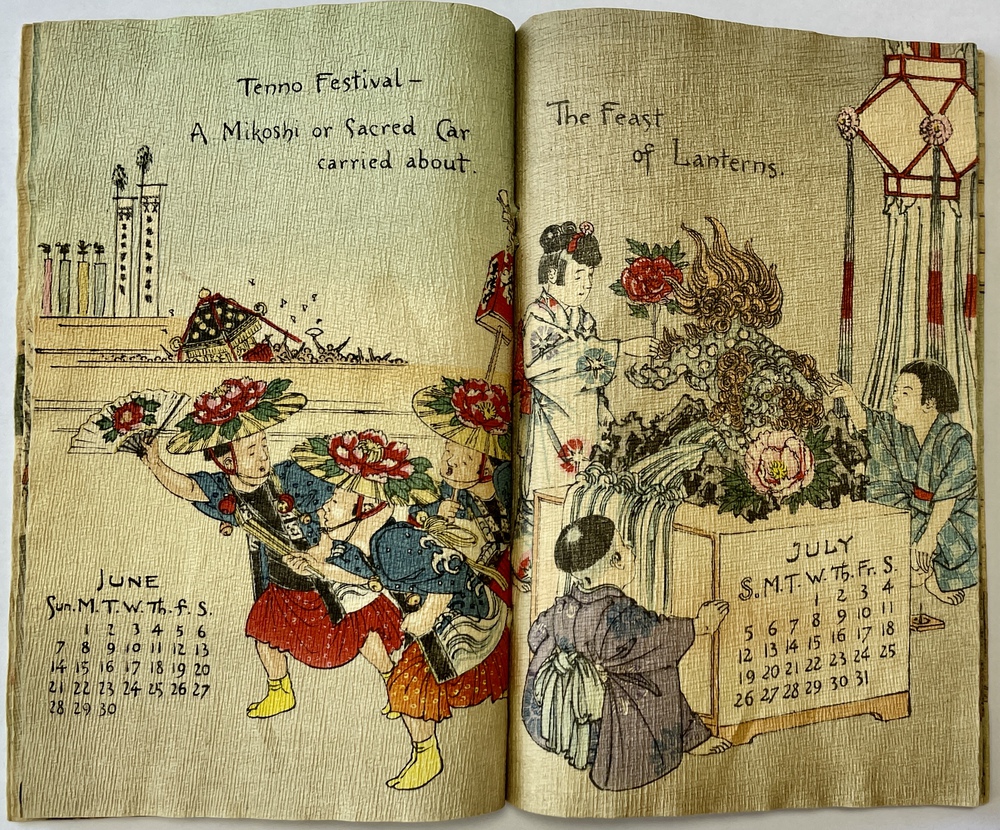 Tenno Festival –
A Mikoshi or Sacred Car
carried about.
JUNE
Sun. M. T. W. Th. f. S.
1 2 3 4 5 6
7 8 9 10 11 12 13
14 15 16 17 18 19 20
21 22 23 24 25 26 27
28 29 30
The Feast
of Lanterns.
JULY
S. M. T. W. Th. Fr. S.
1 2 3 4
5 6 7 8 9 10 11
12 13 14 15 16 17 18
19 20 21 22 23 24 25
26 27 28 29 30 31